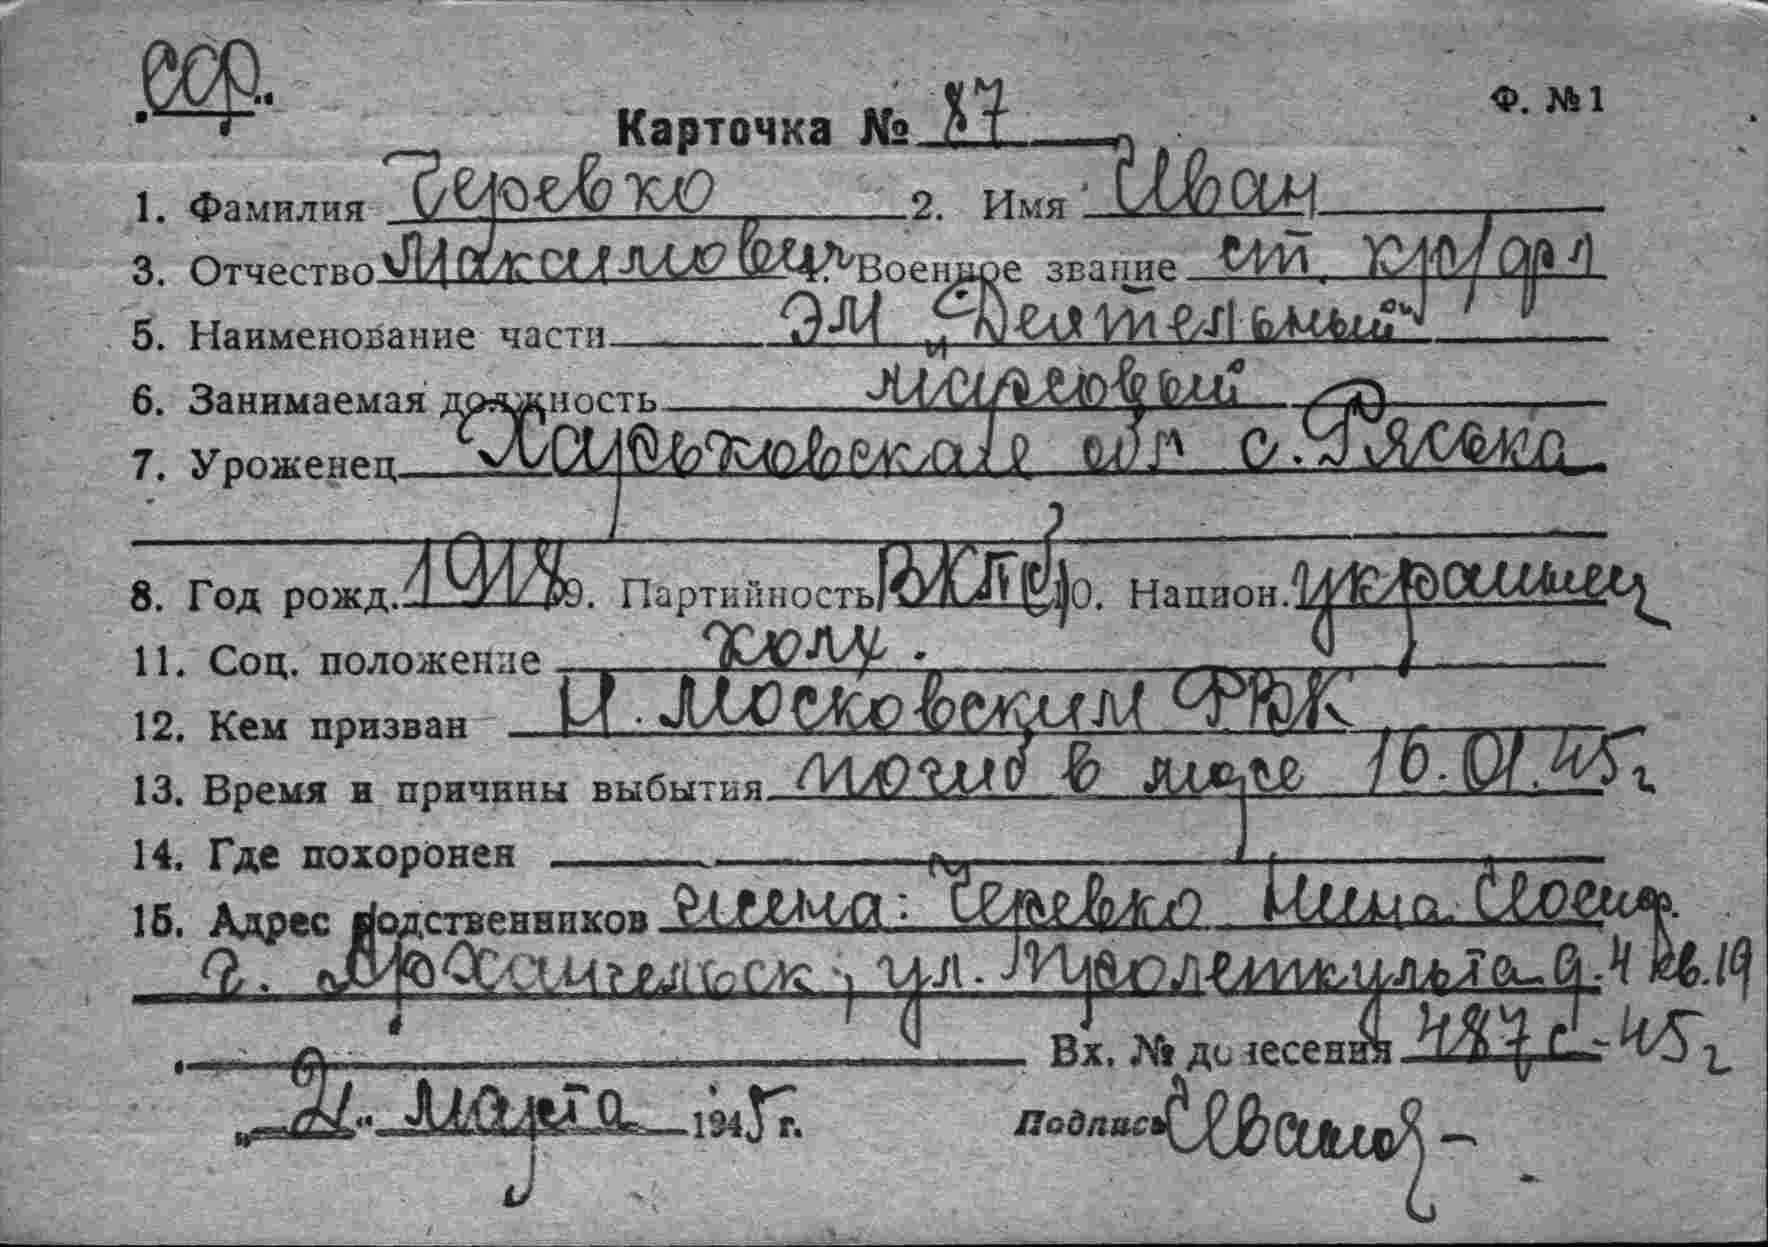 ССР.
Карточка № 87 Ф. № 1
1. Фамилия Черевко 2. Имя Иван
3. Отчество Максимович 4. Военное звание ст. кр/фл
5. Наименование части ЭМ „Деятельный"
6. Занимаемая должность марсовый
7. Уроженец Харьковская обл с. Ряська
8. Год рожд. 1918 9. Партийность ВКП(б) 10. Национ. украинец
11. Соц. положение колх.
12. Кем призван Н. Московским РВК
13. Время и причины выбытия погиб в море 16.01.45 г
14. Где похоронен
15. Адрес родственников жена: Черевко Нина Иосиф.
г. Архангельск, ул. Пролеткульта д. 4 кв. 19
Вх. № донесения 487с-45 г
„21" марта 1945 г. Подпись Иванов